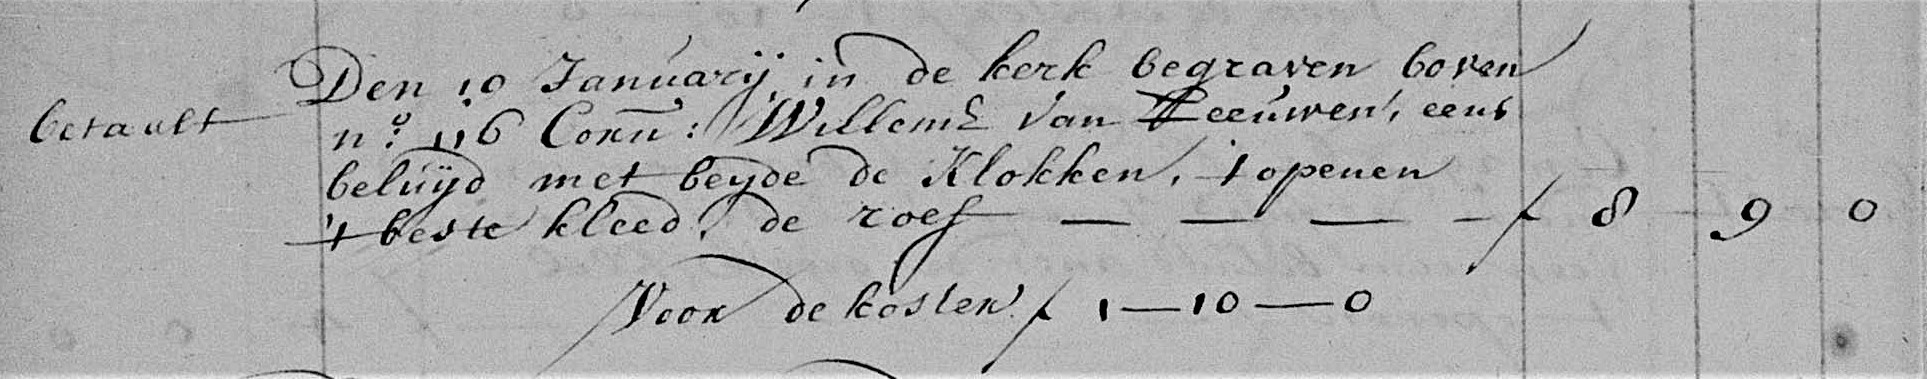 Den 10 Januarij in de kerk begraven boven
betaalt n.º 116 Corn̄: Willemsz van Leeuwen, eens
beluijd met beyde de Klokken, 't openen
't beste kleed, de roef — — — - ƒ 8 9 0
Voor de kosten ƒ 1—10—0